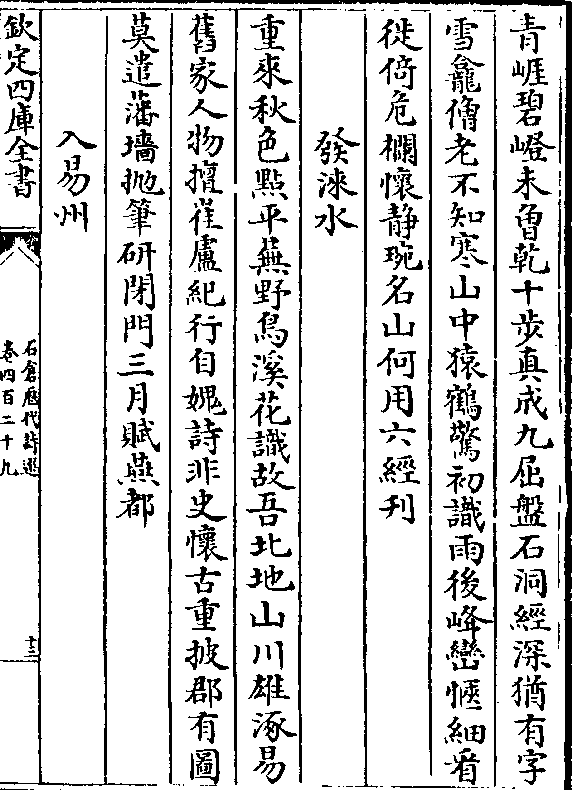 青崕碧嶝未曾乾十步真成九屈盤石洞經深猶有字
雪龕僧老不知寒山中猿鶴驚初識雨後峰巒愜細看
徙倚危欄懷静琬名山何用六經刋
發淶水
重來秋色㸃平蕪野鳥溪花識故吾北地山川雄涿易
舊家人物擅崔盧紀行自媿詩非史懷古重披郡有圖
莫遣藩墻抛筆研閉門三月賦燕都
入易州
欽定四庫全書
石倉歴代詩選
卷四百二十九
十三